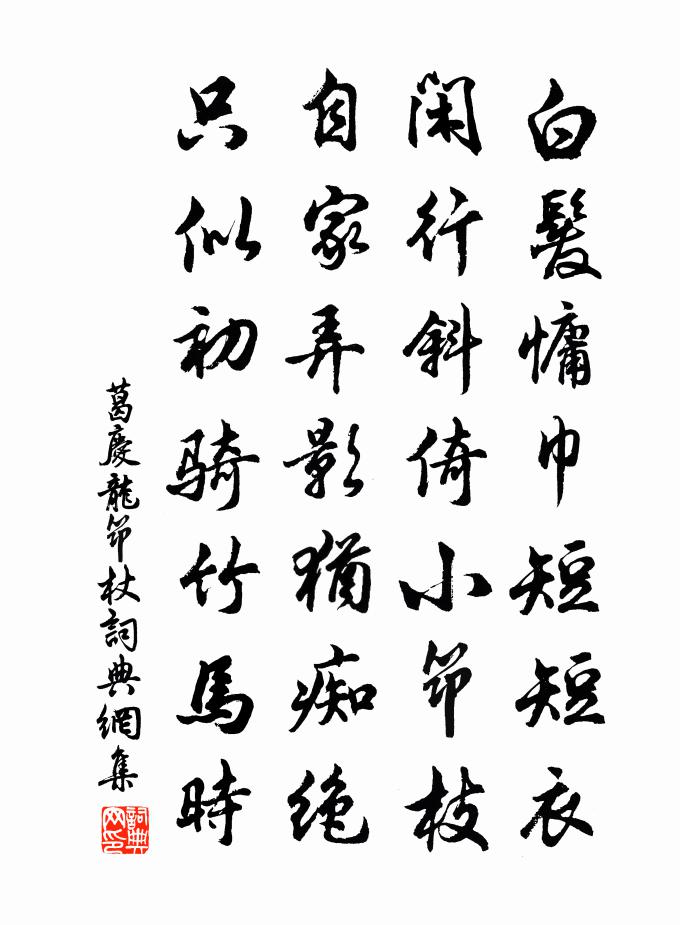 白髮慵巾短短衣
閑行斜倚小筇枝
自家弄影猶痴絶
只似初騎竹馬時
葛慶龍筇杖詞典網集
詞典网印